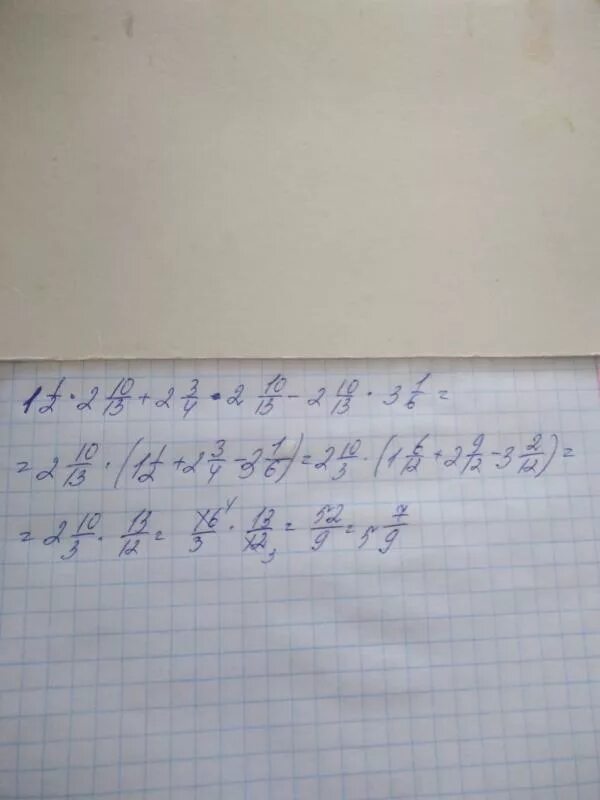 1 1/2 · 2 10/13 + 2 3/4 · 2 10/13 - 2 10/13 · 3 1/6 =
= 2 10/13 · (1 1/2 + 2 3/4 - 3 1/6) = 2 10/3 · (1 6/12 + 2 9/12 - 3 2/12) =
= 2 10/3 · 13/12 = 16/3 4 · 13/12 3 = 52/9 = 5 7/9